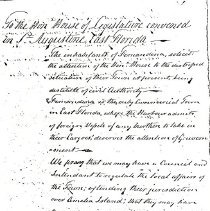 To the Hon. House of Legislative convened
in St. Augustine, East Florida
The inhabitants of Fernandina, solicit
the attention of the Hon. House to the distressed
situation of their Town at present being
destitute of civil Authority
Fernandina is the only Commercial Town
in East Florida, whose the Harbour admits
of foreign Vessels of any burthen to take in
their cargoes deserves the attention of Government
We pray that we may have a Council and
Intendant to regulate the local affairs of
the Town, extending their jurisdiction
over Amelia Island; that they may have